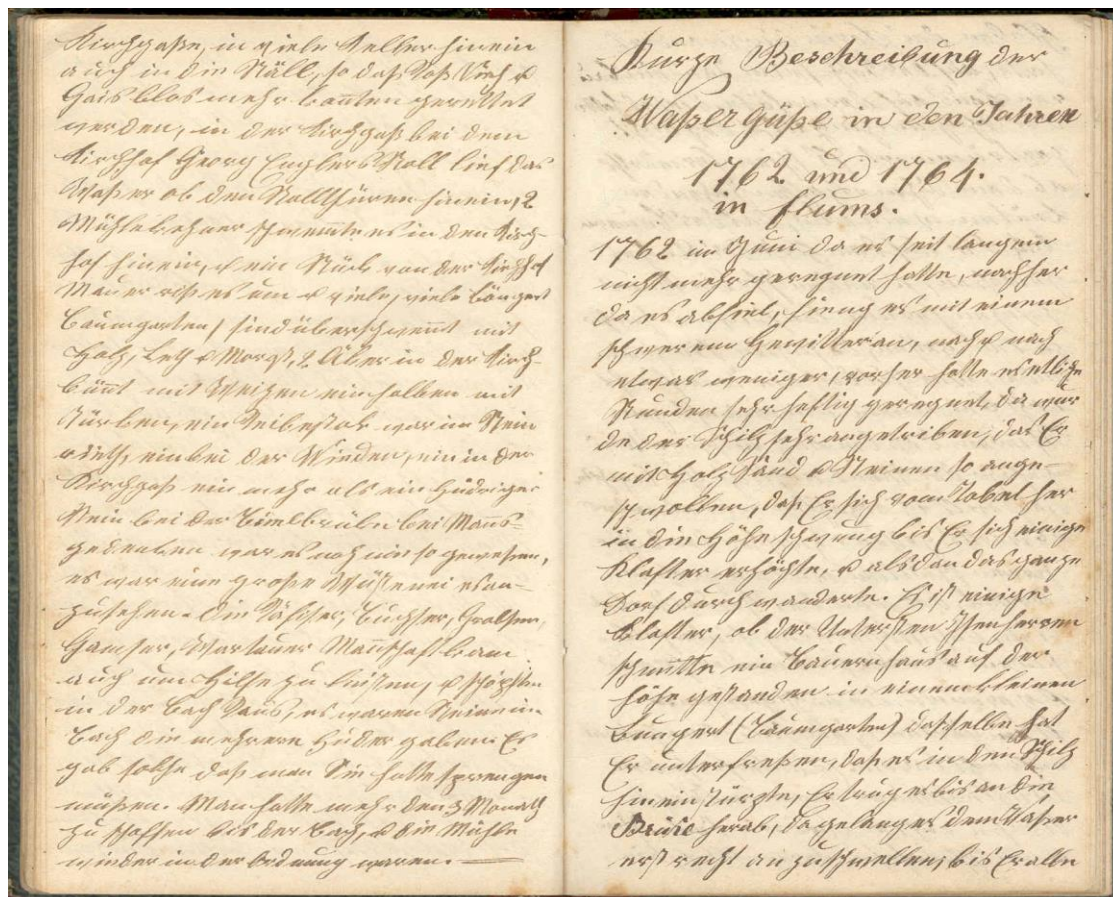 Kirchgaße, in viele Keller hinein
auch in die Ställ, so daß das Vieh u
Gais blos mehr konten gerettet
werden, in der Kirchgaß bei dem
Kirchhof Georg Englers Stall lief das
Waßer ob den Stallthüren hinein, 2
schwemte es in den Kirch-
hof hinein, u ein Stück von der Kirchhof
Mauer riß es um u viele, viele Büngert
Baumgarten) sind überschwemt mit
Holz, Lett u Morast, 2 Äker in der Kirch-
bünt mit Weitzen ein halben mit
Türken, ein war im Stein
rieth, ein bei der Wieden, ein in der
Kirchgaß ein mehr als ein hüdriger
Stein bei der bei Mans-
gedenken war es noch nie so gewesen,
es war eine große Wüstenei es an-
zusehen. Die Säxser, Buchser, Grabser,
Gamser, Wartauer Manschaft kam
auch um Hilfe zu leisten, u schöpften
in der Bach aus, es waren Steine im
Bach die mehrere Huder gaben. Es
gab solche daß man Sie hatte sprengen
müßen. Man hatte mehr den 3 Monath
zu schaffen bis der Bach, u die Mühle
wieder in der Ordnung waren. —
Kurze Beschreibung der
Waßergüße in den Jahren
1762 und 1764.
in flums.
1762 im Juni da es seit langem
nicht mehr geregnet hatte, nachher
da es abfiel, fieng es mit einem
schwerem Gewitter an, nach u nach
etwas weniger, vorher hatte es etliche
Stunden sehr heftig geregnet, da wur
de der Schilz sehr angetriben, das Er
mit Holz Sand u Steinen so ange-
schwollen, daß Er sich vom Tobel her
in die Höhe schwung bis Er sich einige
Klafter erhöchte, u alsdan das ganze
Dorf durchwanderte. Es ist einige
Klafter, ob der Untersten Isenherren
schmitte ein Bauernhaus auf der
höhe gestanden in einem kleinen
Bungert (Baumgarten) daßelbe hat
Er unterfreßen, daß es in den Schilz
hinein stürzte, Er trug es bis an die
Brüke herab, da gelang es dem Waßer
erst recht an zuschwellen, bis Er alle